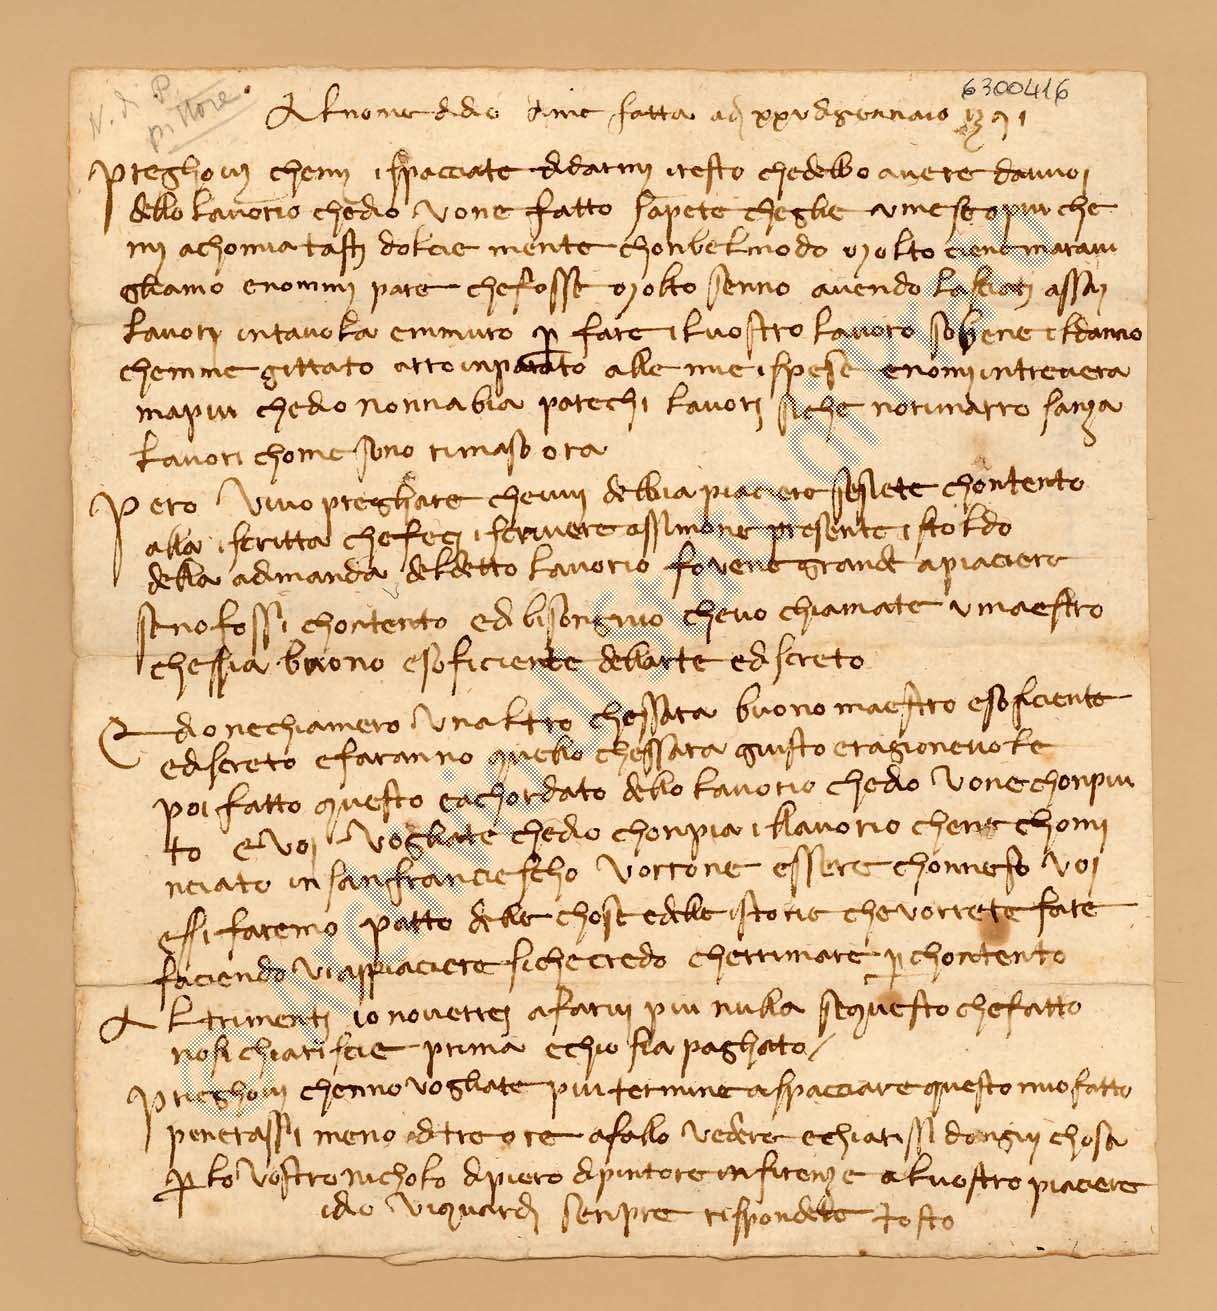 N. di P. pittore
6300416
Al nome di dio amē fatta adj xxv di giennaio 1391
Preghovi chemi ispacciate di darmi iresto chedebbo avere davvoj
dello lavorio chedio vone fatto sapete chegle umese opiu che
mi achomiatastj dolcie mente chonbelmodo molto ciene maravi
gliamo enommi pare chefosse molto senno avendo lasciatj assaj
lavorj intavola emmuro p fare iluostro lavoro sobene ildanno
chemme gittato arroinparato alle mie ispese enomintrevera
mapiu chedio nonnabia parechi lavorj siche norimarro sanza
lavori chome sono rimaso ora
Pero vivo preghare chevvi debbia piaciere sesiete chontento
alla iscritta chefecj iscrivere assimone presente istoldo
della adimanda deldetto lavorio fovene grande apiaciere
senofossi chontento edi bisongnio chevo chiamate umaestro
chessia buono esoficiente dellarte ediscreto
E dio nechiamero unaltro chessara buono maestro esoficiente
ediscreto efaranno quello chessara giusto eragionevole
poi fatto questo eachordato dello lavorio chedio vone chonpiu
to evoj vogliate chedio chonpia illavorio chene chomi
nciato in sanfranciescho vorrone essere chonnesso voj
essi faremo patto delle chose edelle istorie chevorrete fare
faciendo vi appiaciere siche credo cherrimare p chontento
Altrimentj io noverrej afarvi piu nulla sequesto chefatto
nosi chiariscie prima echio sia paghato
Prieghovi chenno vogliate piu termine aspacciare questo mio fatto
penerassi meno ditre ore afallo vedere echiarissi dongni chosa
p lo vostro nicholo dipiero dipintore infirenze alvostro piaciere
idio viguardj senpre rispondete tosto